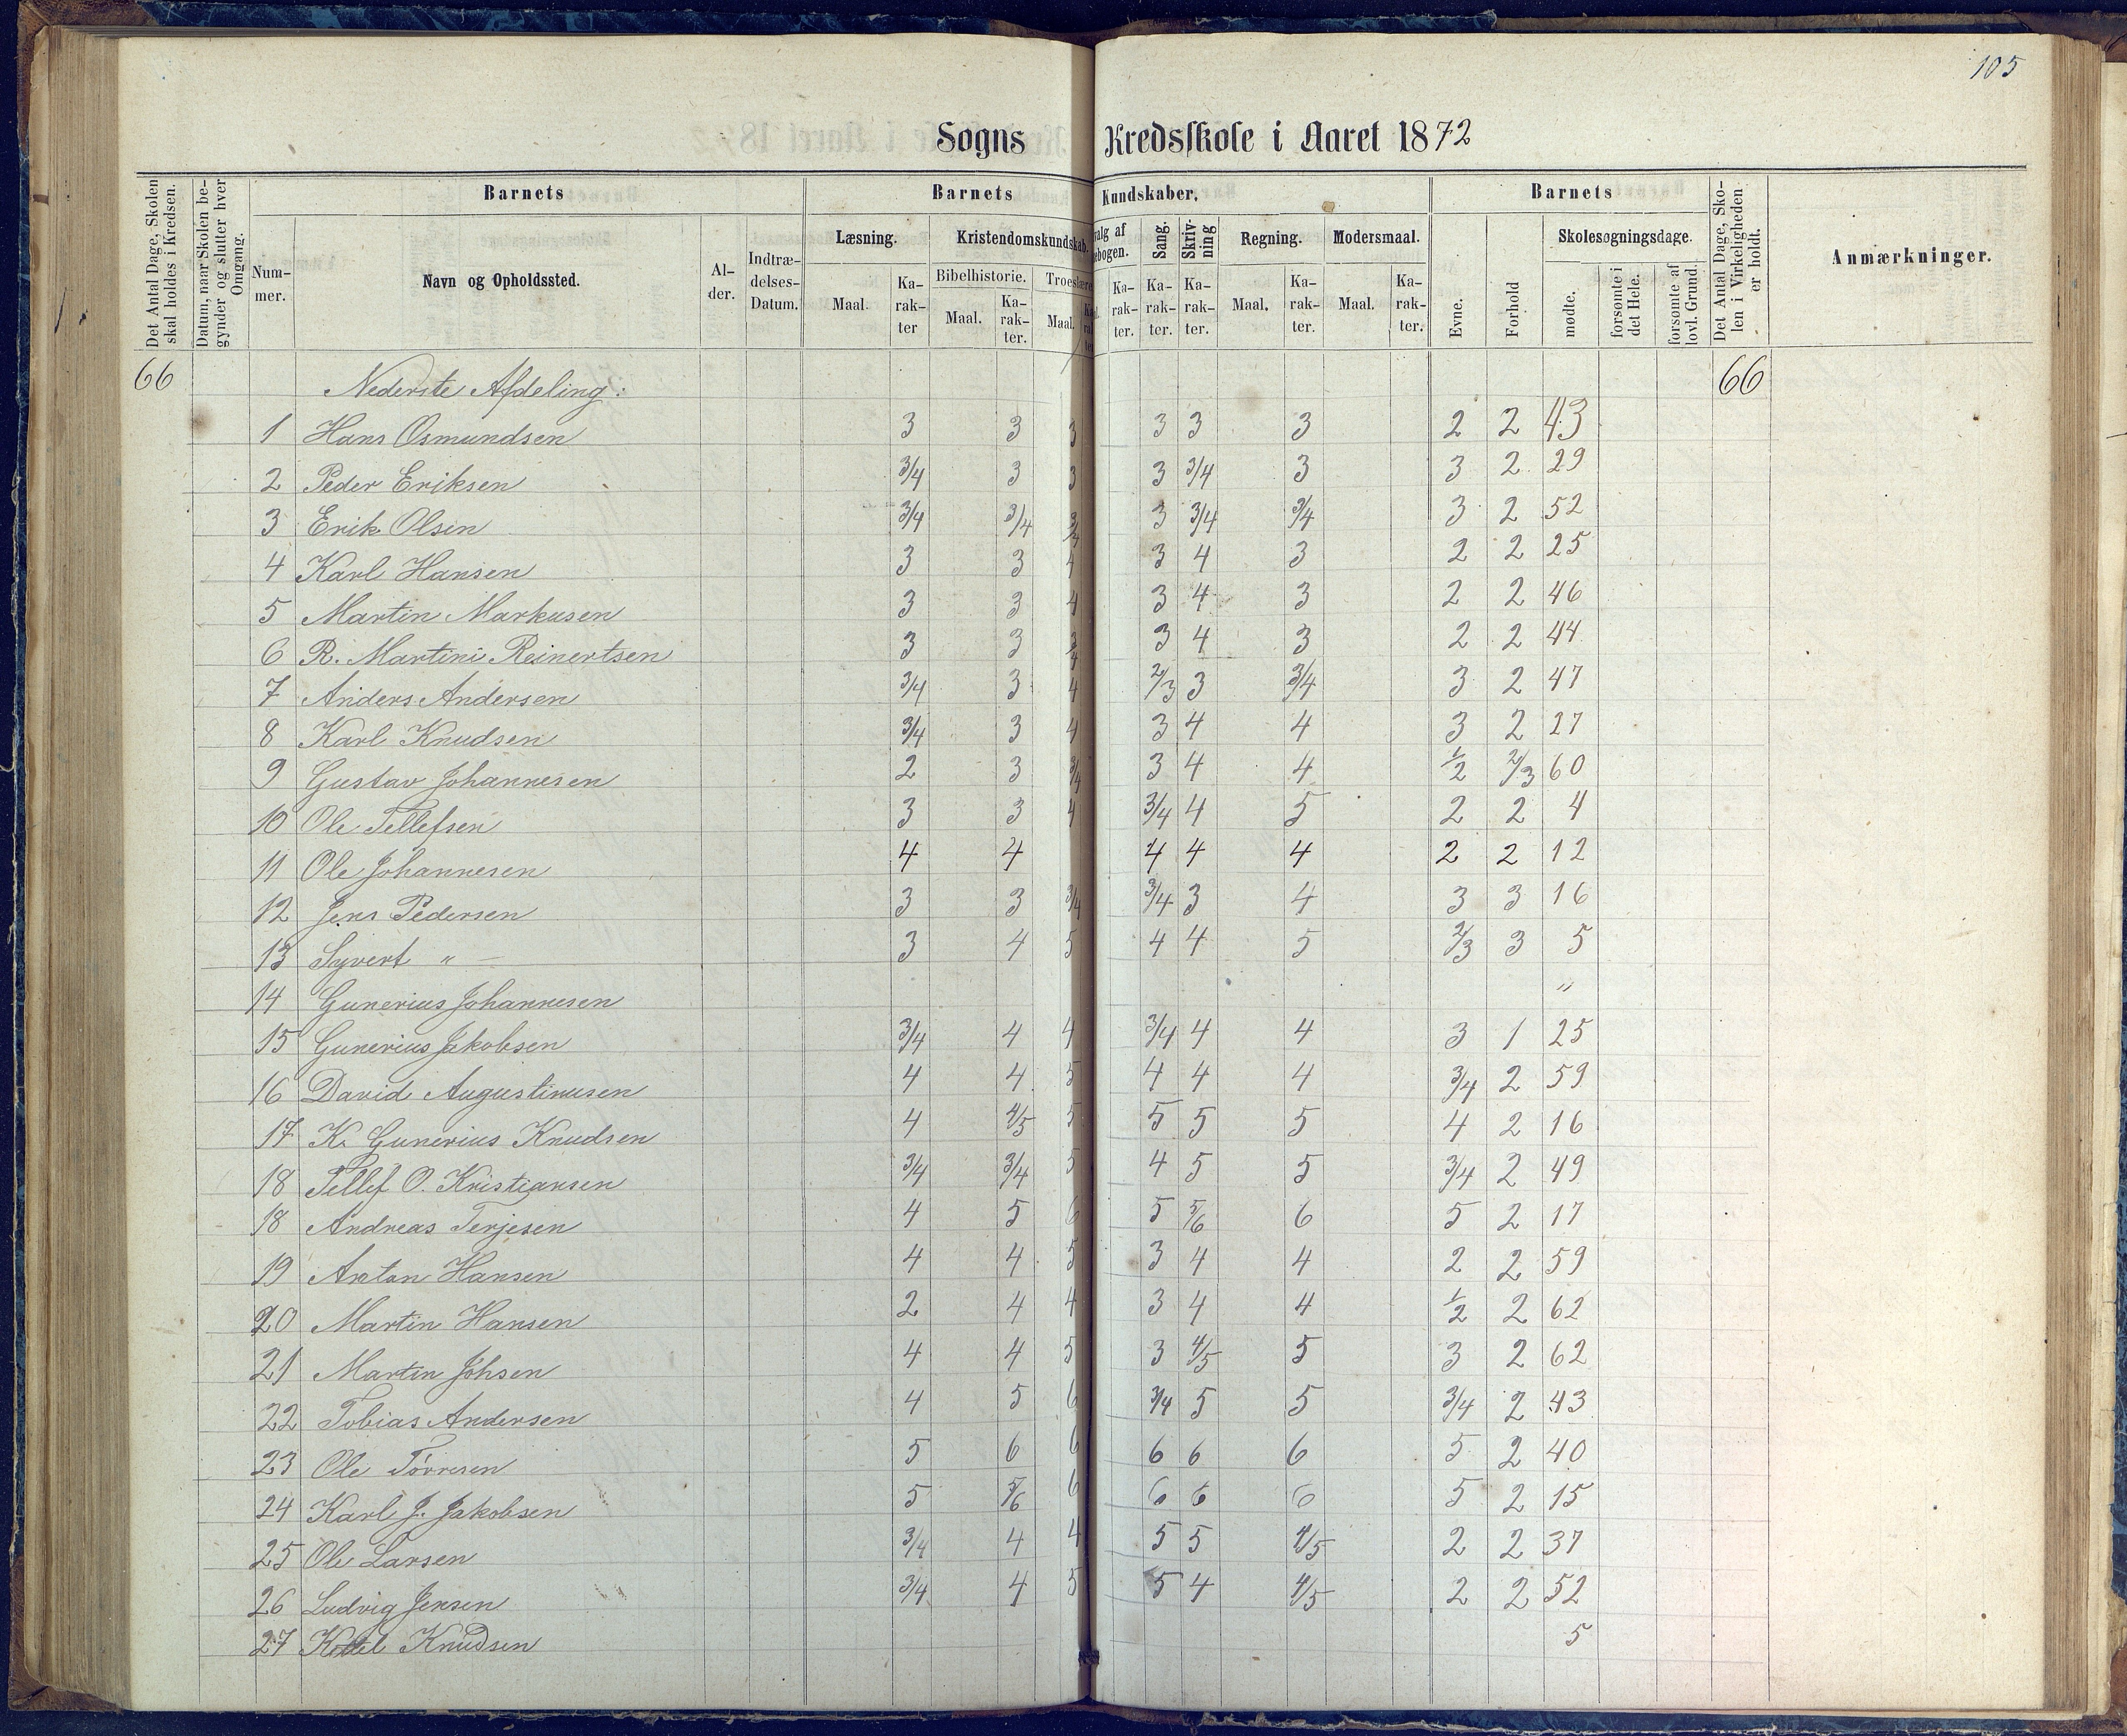 105
Sogns Kredsskole i Aaret 1872
Det Antal Dage, Skolen skal holdes i Kredsen.
Datum, naar Skolen begynder og slutter hver Omgang.
Barnets
Nummer.
Navn og Opholdssted.
Alder.
Indtrædelses-Datum.
Barnets Kundskaber.
Læsning.
Maal.
Karakter
Kristendomskundskab.
Bibelhistorie.
Maal.
Karakter.
Troeslære
Maal.
valg af
ebogen.
Karakter.
Sang.
Karakter.
Skrivning
Karakter.
Regning.
Maal.
Karakter.
Modersmaal.
Maal.
Karakter.
Barnets
Evne.
Forhold
Skolesøgningsdage.
mødte.
forsømte i det Hele.
forsømte af lovl. Grund.
Det Antal Dage, Skolen i Virkeligheden er holdt.
Anmærkninger.
66 Nederste Afdeling: 66
1 Hans Osmundsen 3 3 3 3 3 3 2 2 43
2 Peder Eriksen 3/4 3 3 3 3/4 3 3 2 29
3 Erik Olsen 3/4 3/4 3/4 3 3/4 3/4 3 2 52
4 Karl Hansen 3 3 4 3 4 3 2 2 25
5 Martin Markusen 3 3 4 3 4 3 2 2 46
6 R. Martini Reinertsen 3 3 3/4 3 4 3 2 2 44
7 Anders Andersen 3/4 3 4 2/3 3 3/4 3 2 47
8 Karl Knudsen 3/4 3 4 3 4 4 3 2 27
9 Gustav Johannesen 2 3 3/4 3 4 4 1/2 2/3 60
10 Ole Tellefsen 3 3 4 3/4 4 5 2 2 4
11 Ole Johannesen 4 4 4 4 4 2 2 12
12 Jens Pedersen 3 3 3/4 3/4 3 4 3 3 16
13 Syvert " — 3 4 5 4 4 5 2/3 3 5
14 Gunerius Johannesen "
15 Gunerius Jakobsen 3/4 4 4 3/4 4 4 3 1 25
16 David Augustinusen 4 4 5 4 4 4 3/4 2 59
17 K. Gunerius Knudsen 4 4/5 5 5 5 5 4 2 16
18 Tellef O. Kristiansen 3/4 3/4 5 4 5 5 3/4 2 49
18 Andreas Terjesen 4 5 6 5 5/6 6 5 2 17
19 Anton Hansen 4 4 5 3 4 4 2 2 59
20 Martin Hansen 2 4 4 3 4 4 1/2 2 62
21 Martin Johsen 4 4 5 3 4/5 5 3 2 62
22 Tobias Andersen 4 5 6 3/4 5 5 3/4 2 43
23 Ole Tørresen 5 6 6 6 6 6 5 2 40
24 Karl J. Jakobsen 5 5/6 6 6 6 6 5 2 15
25 Ole Larsen 3/4 4 4 5 5 4/5 2 2 37
26 Ludvig Jensen 3/4 4 5 5 4 4/5 2 2 52
27 Kittel Knudsen 5